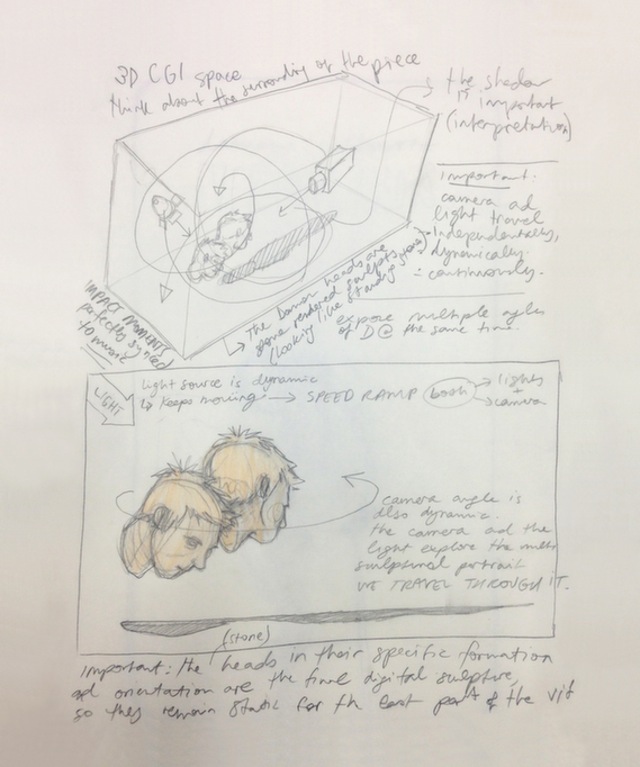 3D CGI space
think about the surrounding of the piece
the shadow
is important
(interpretation)
important:
camera ad
light travel
independently,
dynamically
continuously.
IMPACT MOMENTS
perfectly synced
to music
The Damon heads are
stone rendered sculpts
(looking like standing stone)
expose multiple agles
of D @ the same time.
LIGHT
light source is dynamic
keeps moving → SPEED RAMP both → lights
+
→ camera
camera angle is
also dynamic.
the camera ad the
light explore the multi
sculptural portrait
WE TRAVEL THROUGH IT.
(stone)
important: the heads in their specific formation
ad orientation are the final digital sculpture,
so they remain static for th last part of the vid